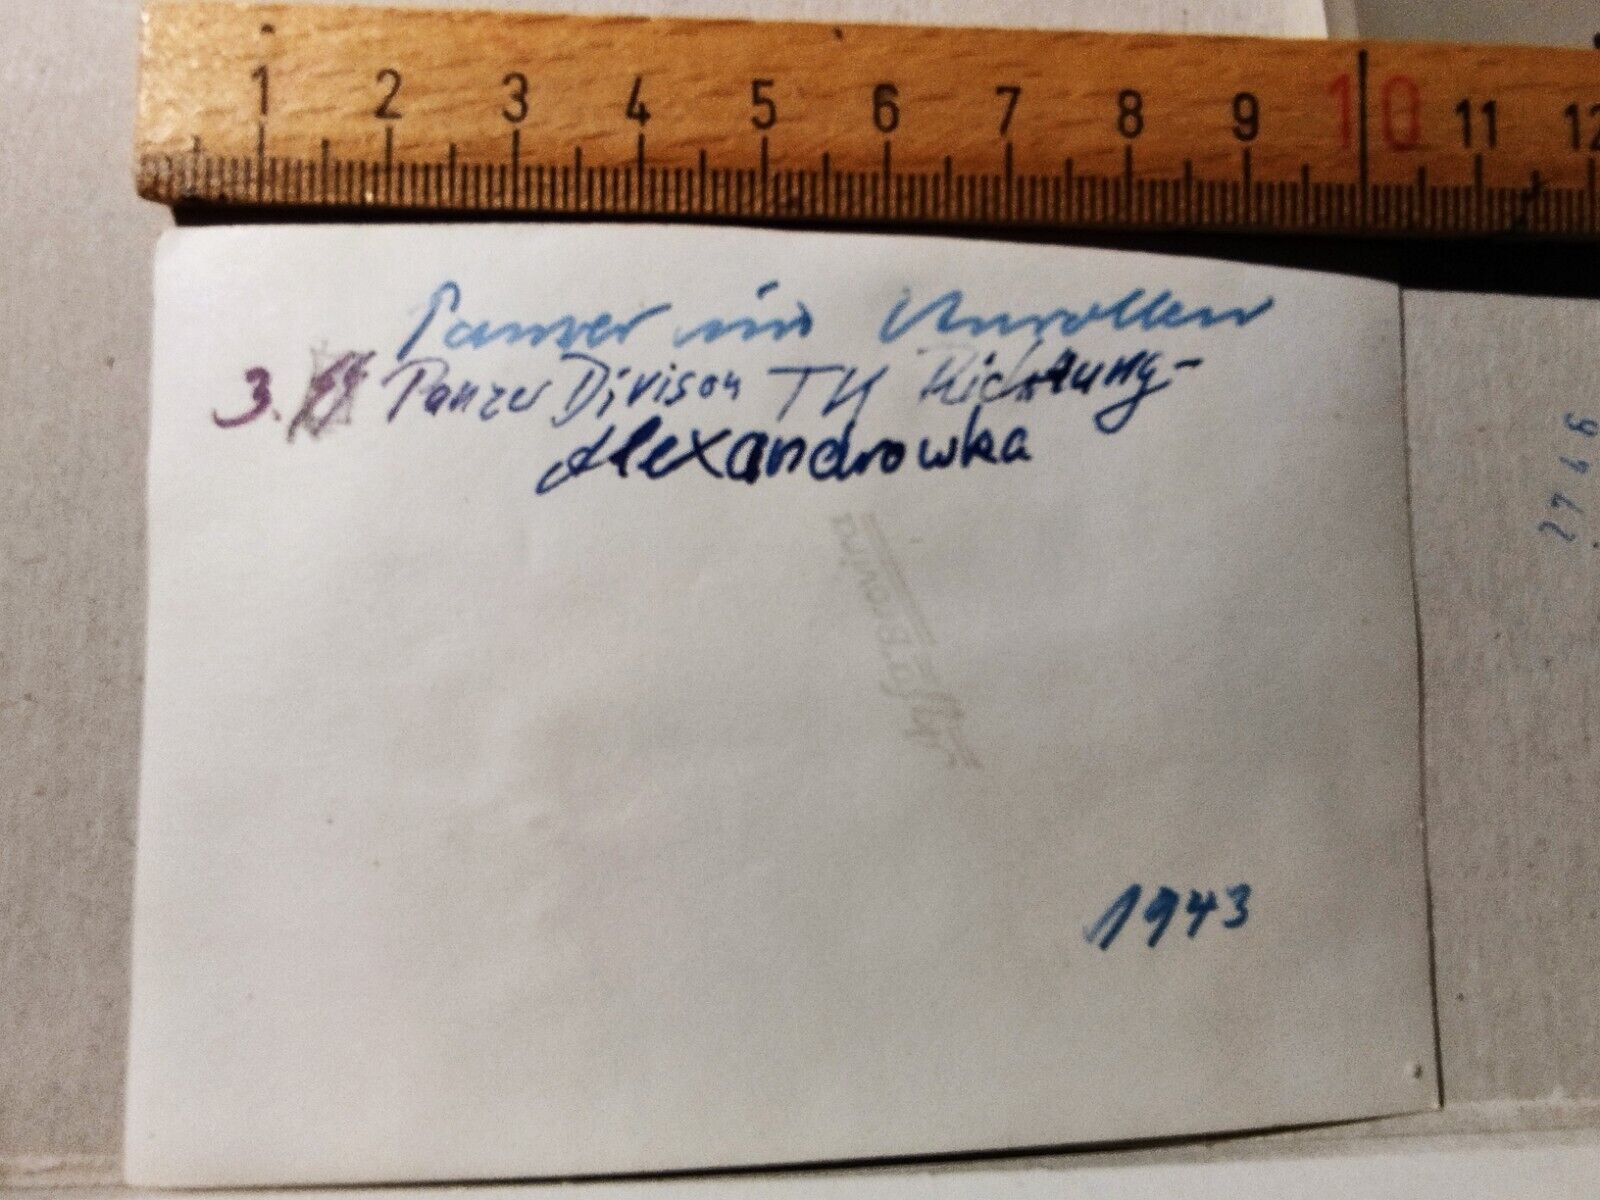 1 2 3 4 5 6 7 8 9 10 11 12
Panzer im Anrollen
3. SS Panzer Divison TK Richtung-
Alexandrowka
1943
2746